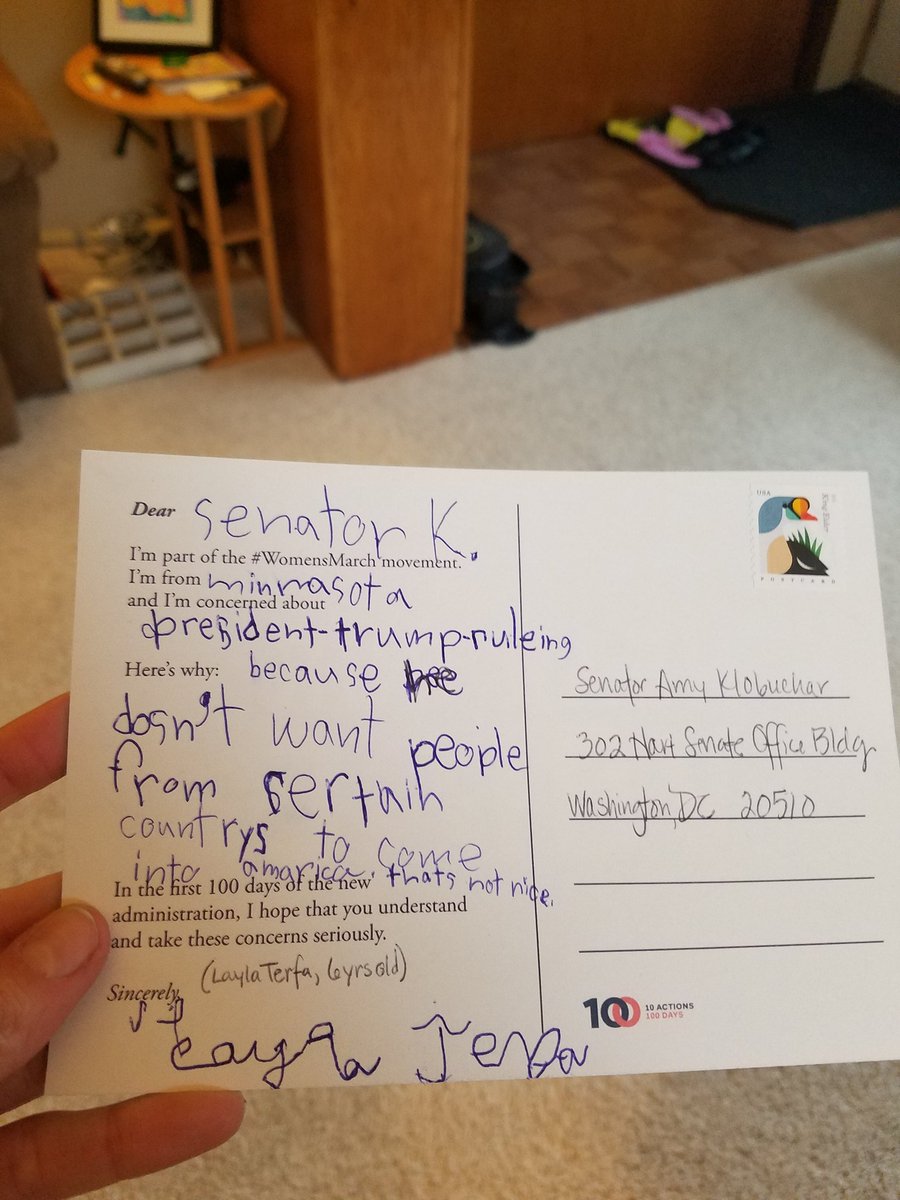 Dear Senator K.
I'm part of the #WomensMarch movement.
I'm from minnasota
and I'm concerned about
president-trump-ruleing
Here's why: because
dosn't want people
from sertain
countrys to come
into amarica. thats not nice.
In the first 100 days of the new
administration, I hope that you understand
and take these concerns seriously.
(Layla Terfa, 6yrs old)
Sincerely,
Layla Terfa
USA
King Eider
POSTCARD
Senator Amy Klobuchar
302 Hart Senate Office Bldg
Washington, DC 20510
100 10 ACTIONS
100 DAYS